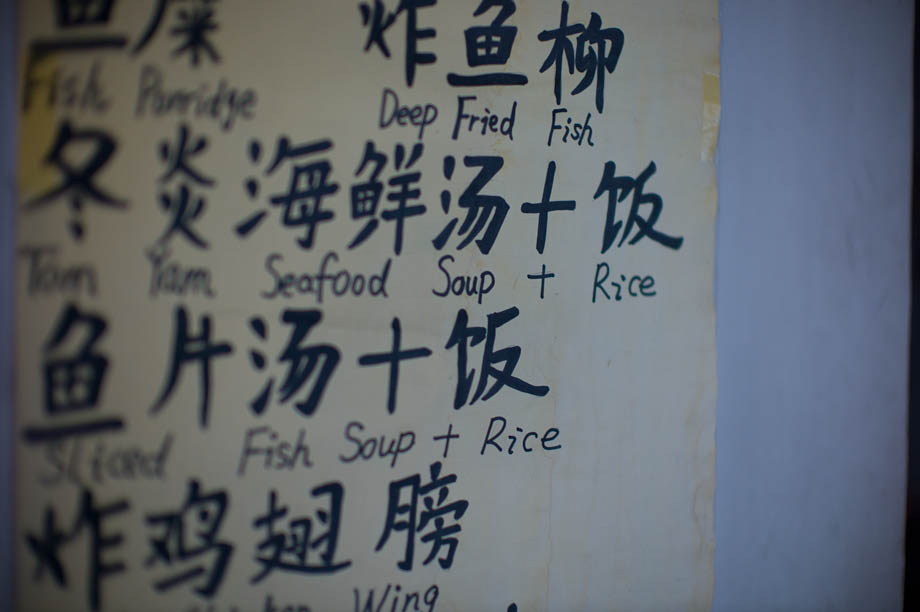 鱼糜 炸鱼柳
Fish Porridge Deep Fried Fish
冬炎海鲜汤+饭
Tom Yam Seafood Soup + Rice
鱼片汤+饭
Sliced Fish Soup + Rice
炸鸡翅膀
Wing